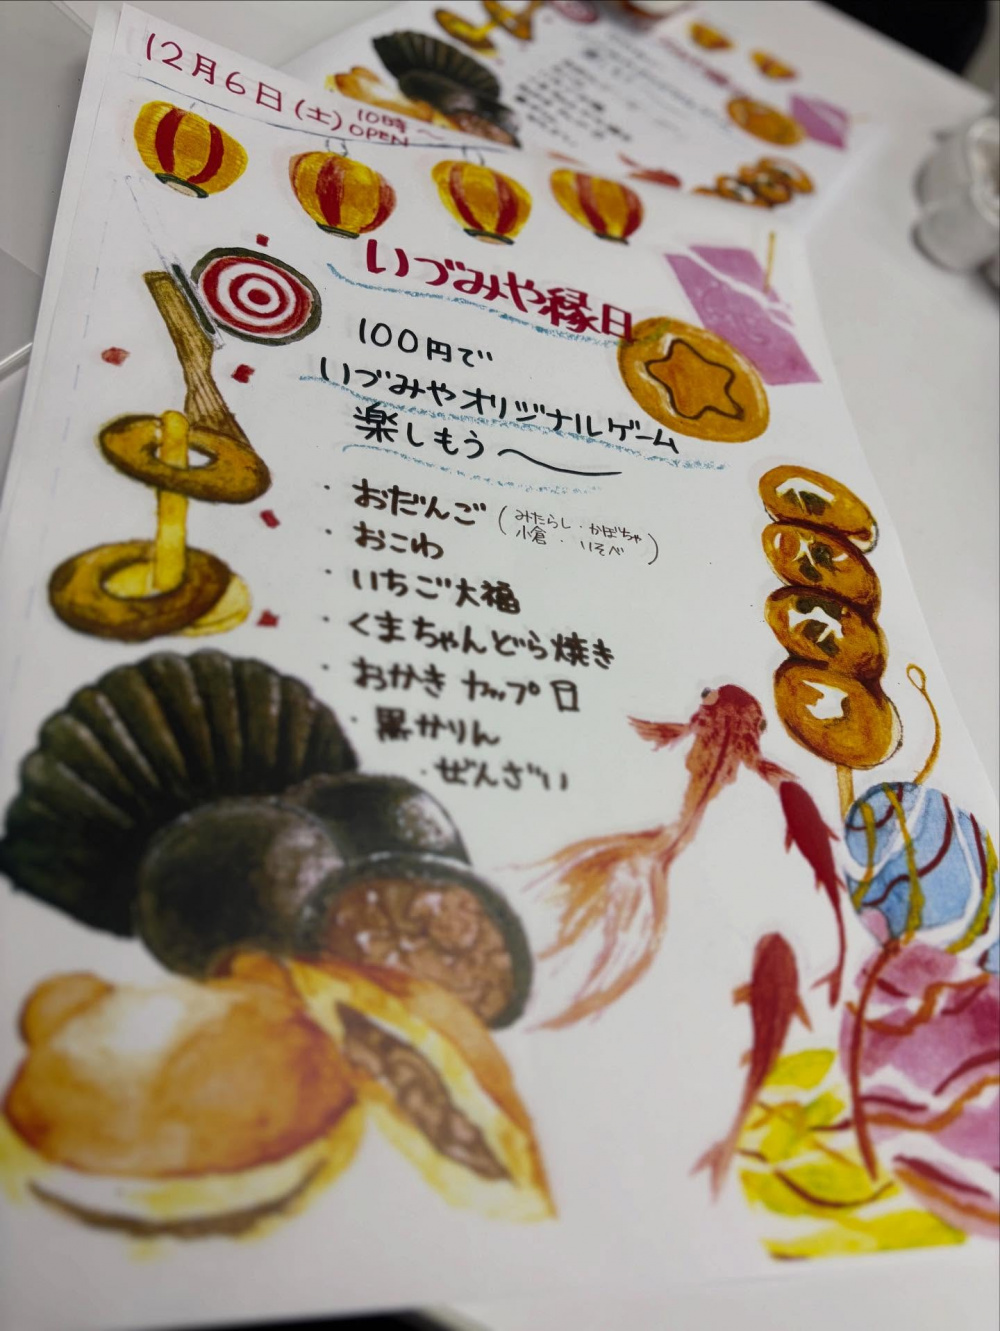 12月6日(土) 10時〜
OPEN
いづみや縁日
100円で
いづみやオリジナルゲーム
楽しもう〜
・おだんご(みたらし・かぼちゃ
小倉・いそべ)
・おこわ
・いちご大福
・くまちゃんどら焼き
・おかき カップ
・黒かりん
・ぜんざい